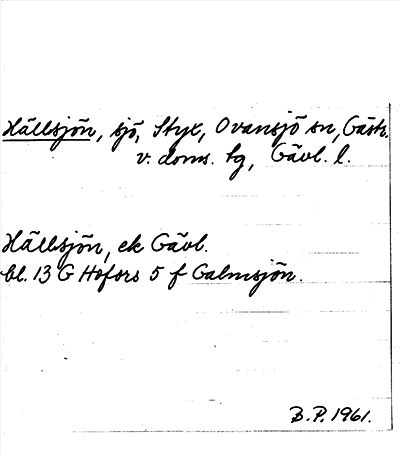 Hällsjön, sjö, Styx, Ovansjö sn, Gästr.
v. doms. tg, Gävl. l.
Hällsjön, ek Gävl.
bl. 13 G Hofors 5 f Galmsjön.
B.P. 1961.